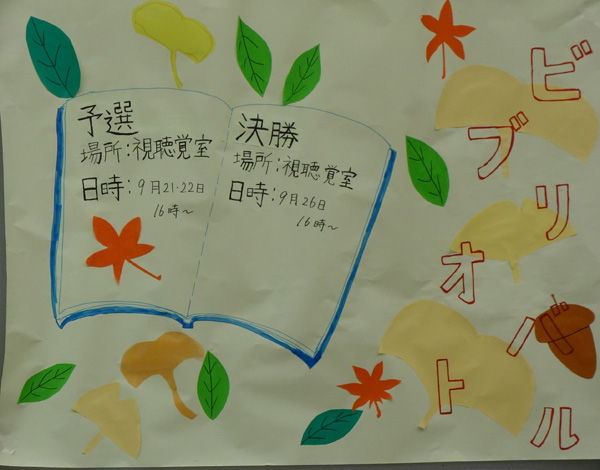 ビブリオバトル
予選
場所:視聴覚室
日時:9月21・22日
16時〜
決勝
場所:視聴覚室
日時:9月26日
16時〜